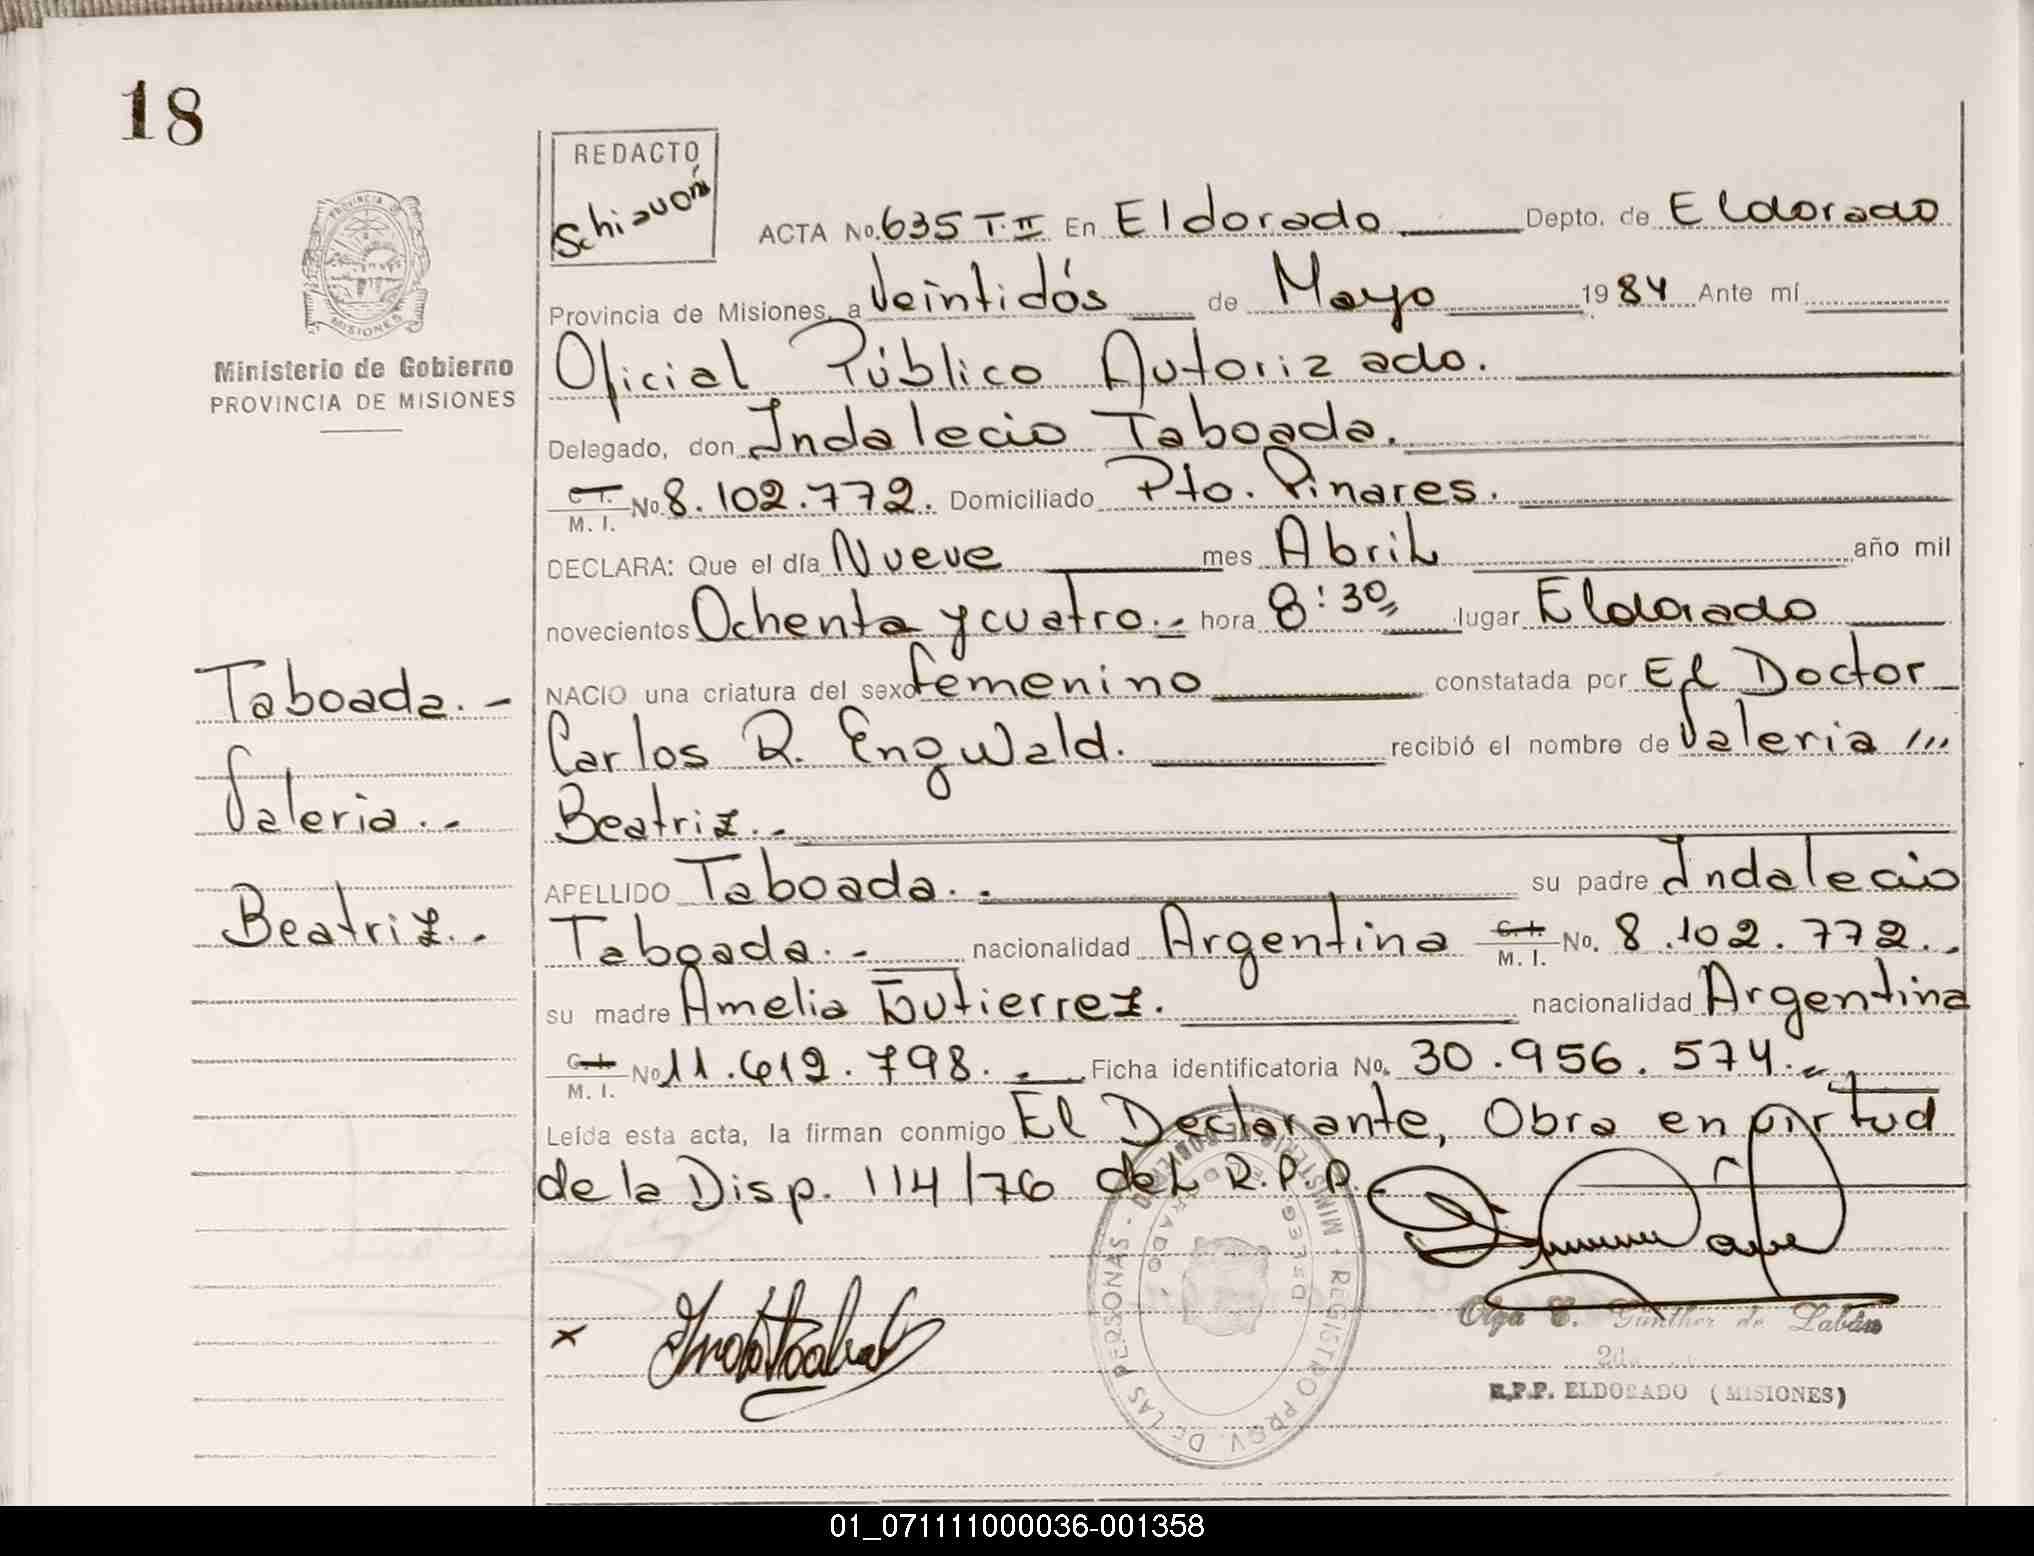 18
REDACTO
Schiavoni
PROVINCIA DE
MISIONES
Ministerio de Gobierno
PROVINCIA DE MISIONES
ACTA No. 635 T. II En Eldorado Depto. de Eldorado
Provincia de Misiones, a Veintidós de Mayo 1984 Ante mí
Oficial Público Autorizado.
Delegado, don Indalecio Taboada.
C. I.
M. I. No 8.102.772. Domiciliado Pto. Pinares.
DECLARA: Que el día Nueve mes Abril año mil
novecientos Ochenta y cuatro.- hora 8:30 lugar Eldorado
NACIO una criatura del sexo femenino constatada por El Doctor
Carlos R. Engwald. recibió el nombre de Valeria
Beatriz.-
APELLIDO Taboada.- su padre Indalecio
Taboada.- nacionalidad Argentina C. I. M. I. No. 8.102.772.-
su madre Amelia Gutierrez. nacionalidad Argentina
C. I.
M. I. No 11.612.798.- Ficha identificatoria No. 30.956.574.-
Leída esta acta, la firman conmigo El Declarante, Obra en virtud
de la Disp. 114/76 del R.P.P.-
Taboada.-
Valeria.-
Beatriz.-
x
REGISTRO PROV. DE LAS PERSONAS
Olga E. Günther de Labán
R.P.P. ELDORADO (MISIONES)
01_071111000036-001358